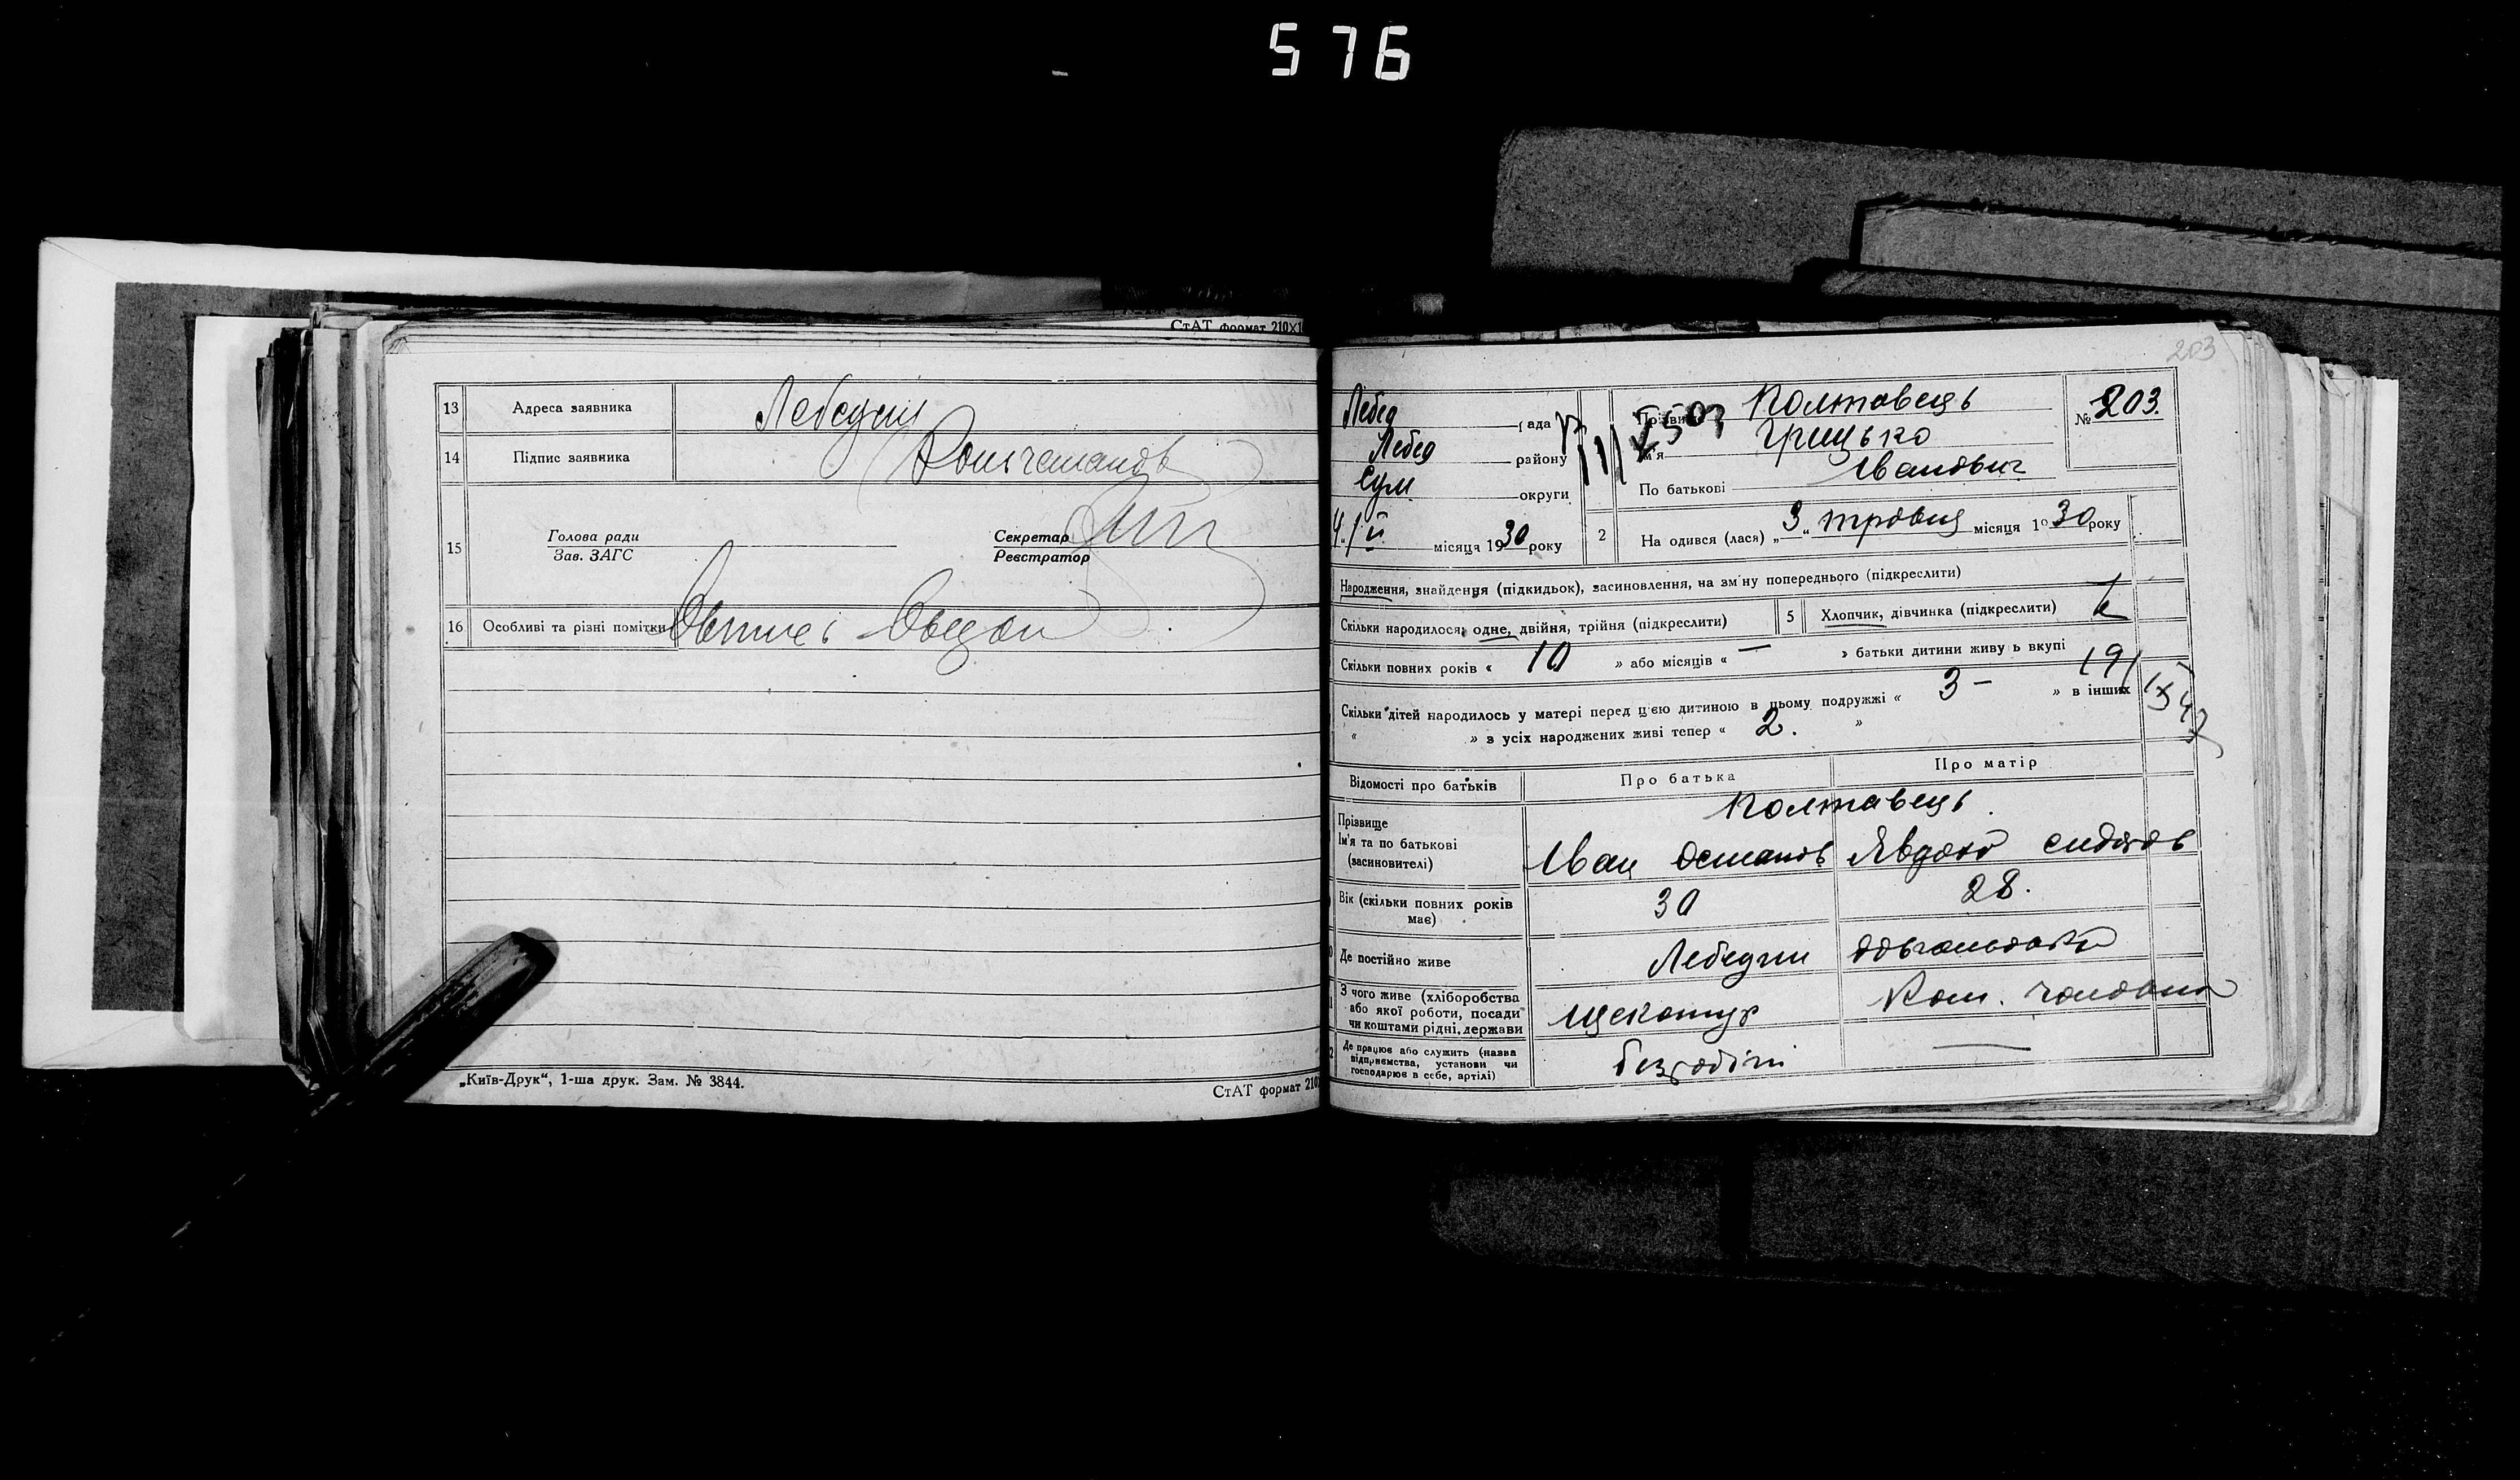 576
СтАТ формат 210Х1
13 Адреса заявника Лебедин
14 Підпис заявника
15 Голова ради
Зав. ЗАГС
Секретар
Реєстратор
16 Особливі та різні помітки
„Київ-Друк“, 1-ша друк. Зам. № 3844.
СтАТ формат 210
203
Лебед рада
Лебед району
Сум округи
місяця 1930 року
Прізви Полтавець
м'я Грицько
По батькові Іванович
№ 203.
2 На одився (лася) „3“ травня місяця 1930 року
Народження, знайдення (підкидьок), засиновлення, на зм ну попереднього (підкреслити)
Скільки народилося: одне, двійня, трійня (підкреслити)
5 Хлопчик, дівчинка (підкреслити)
Скільки повних років « 10 » або місяців « — » батьки дитини живу ь вкупі
Скільки дітей народилось у матері перед цією дитиною в цьому подружжі « 3 – » в інших
« » з усіх народжених живі тепер « 2. »
Відомості про батьків Про батька Про матір
Прізвище Полтавець
Ім'я та по батькові
(засиновителі) Іван Остапов Явдоко Сидоров
Вік (скільки повних років
має) 30 28.
Де постійно живе Лебедин
З чого живе (хліборобства
або якої роботи, посади
чи коштами рідні, держави Щекотур
Де працює або служить (назва
відприємства, установи чи
господарює в себе, артілі) безробітн —